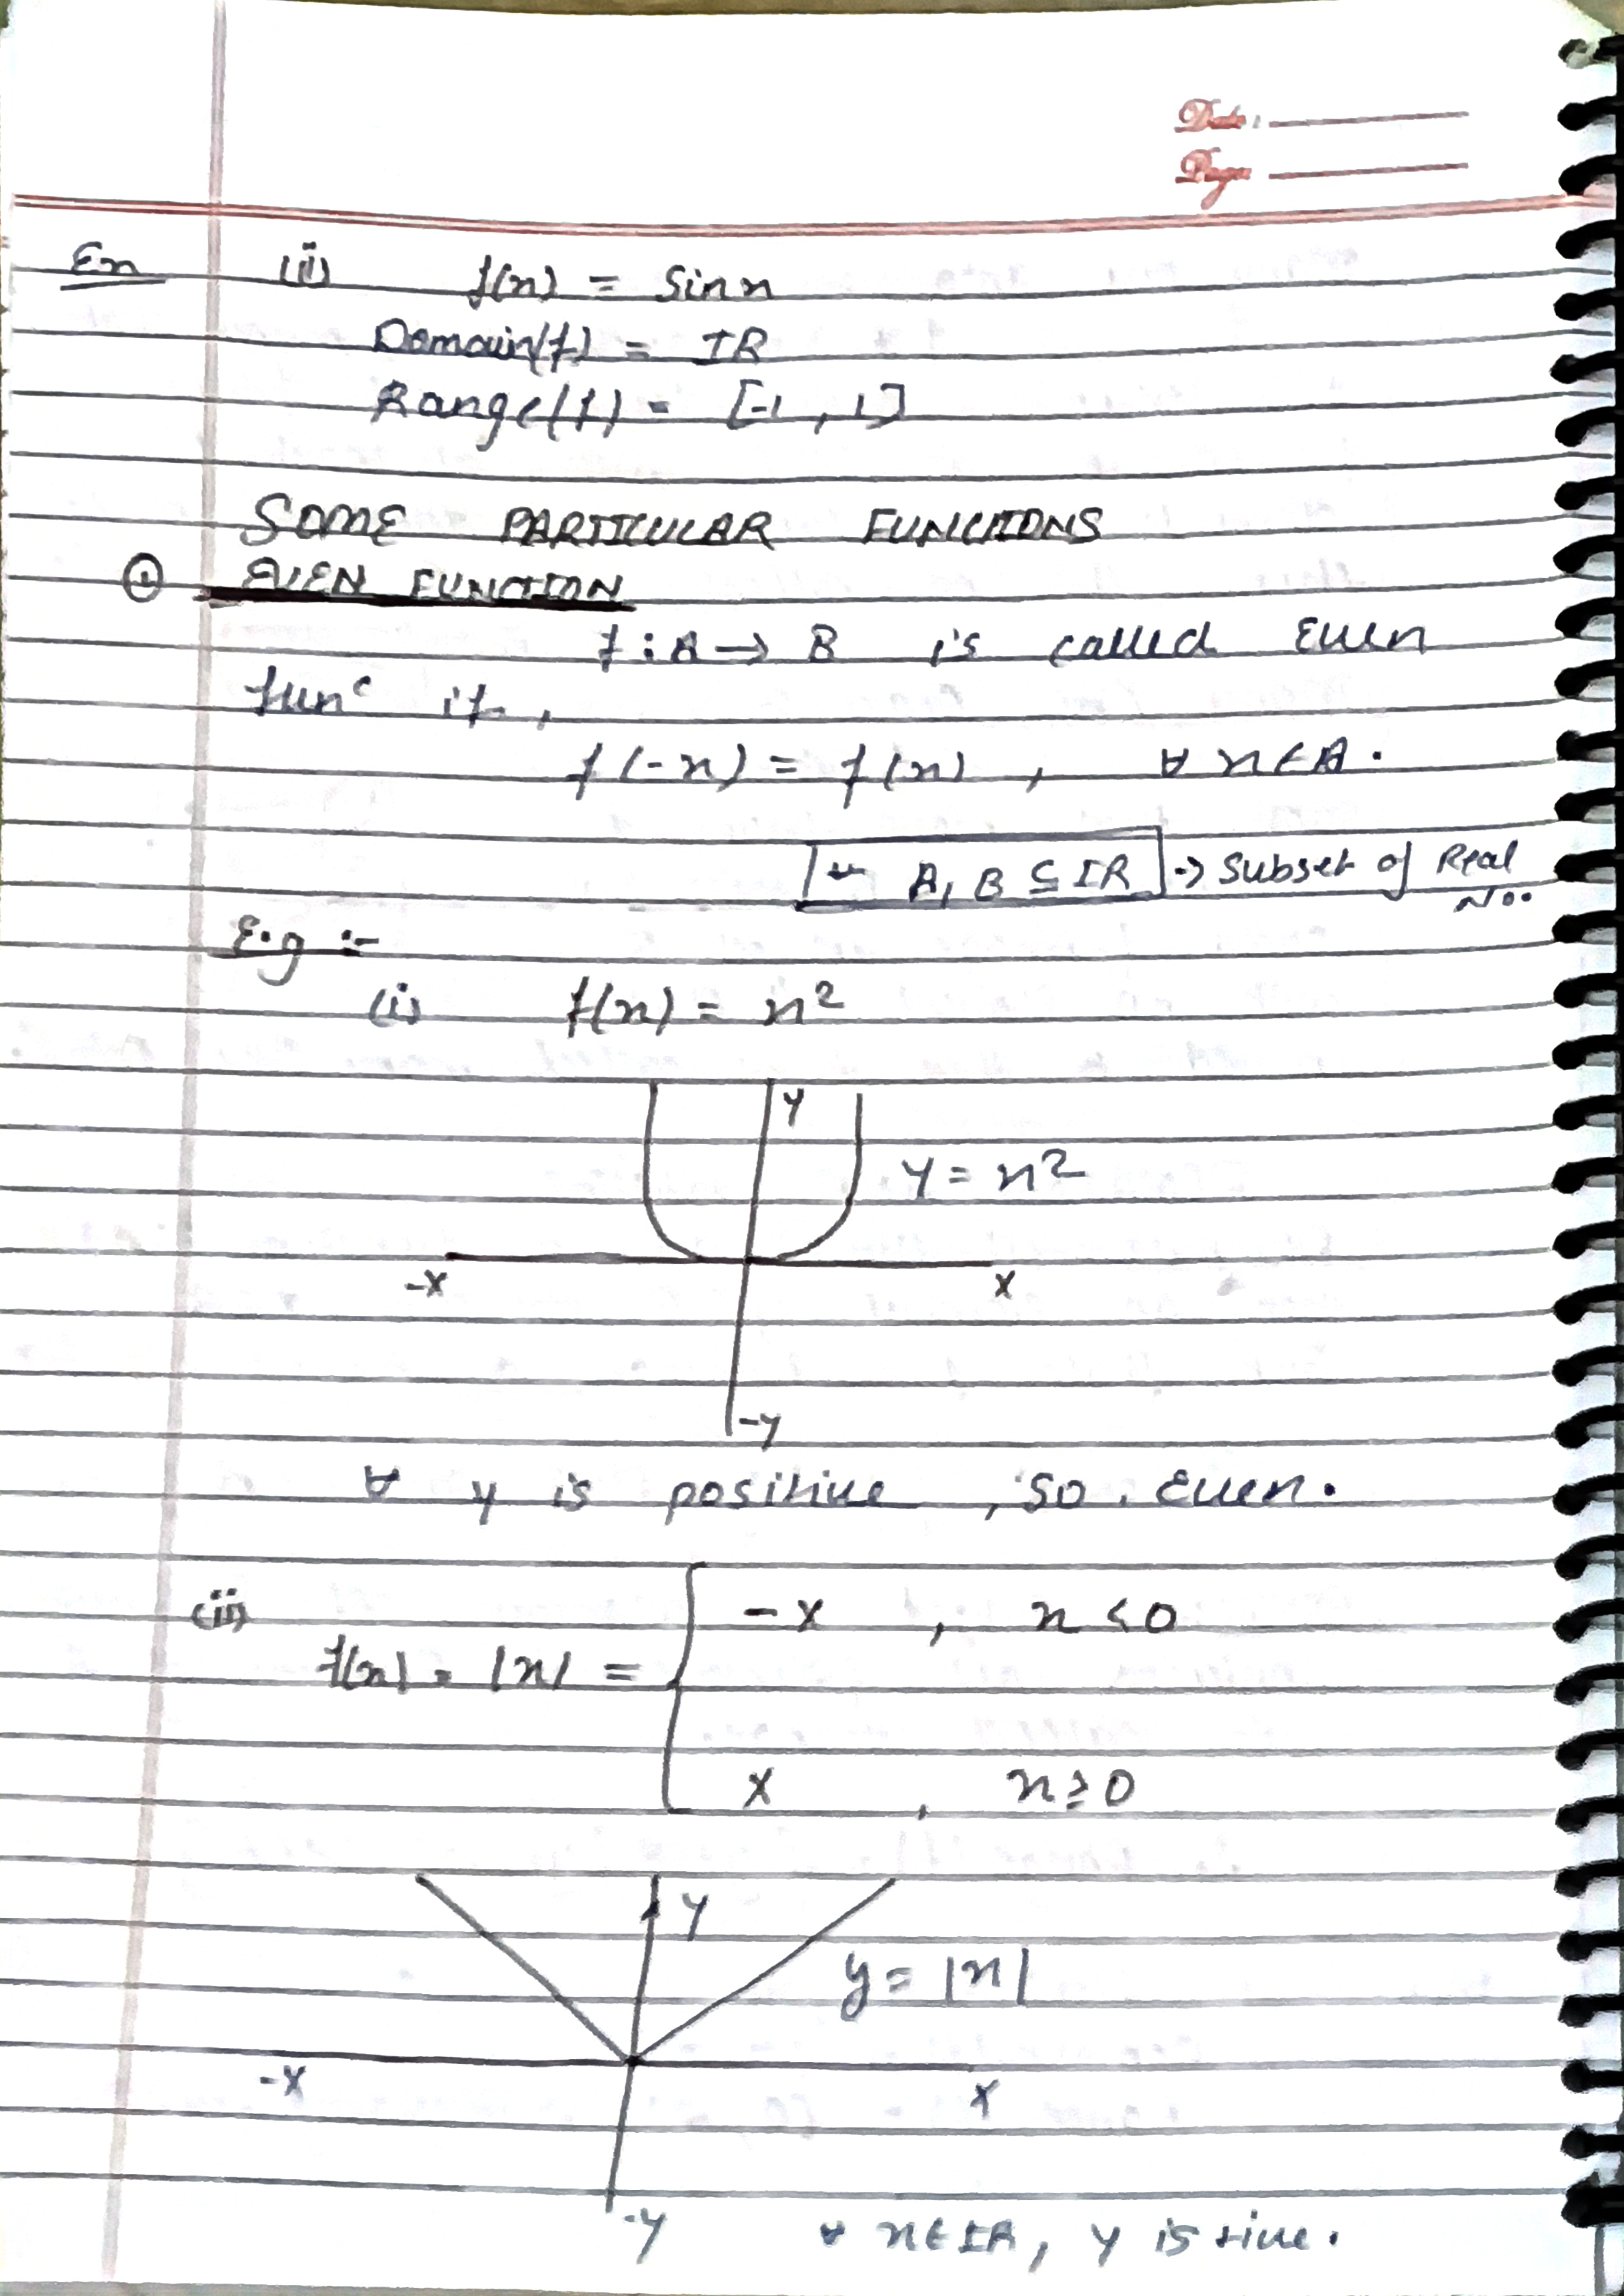 Date: 
Page 
Ex (ii) f(x) = Sinx
Domain(f) = IR
Range(f) = [-1, 1]
SOME PARTICULAR FUNCTIONS
① EVEN FUNCTION
f: A → B is called Even
funᶜ if,
f(-x) = f(x), ∀ x∈A.
A, B ⊆ IR → Subset of Real
No.
E.g :-
(i) f(x) = x²
Y
Y = x²
-X X
-Y
∀ y is positive, So, Even.
(ii) -X, x<0
f(x) = |x| =
X, x≥0
Y
y = |x|
-X X
-Y ∀ x∈IR, Y is +ive.